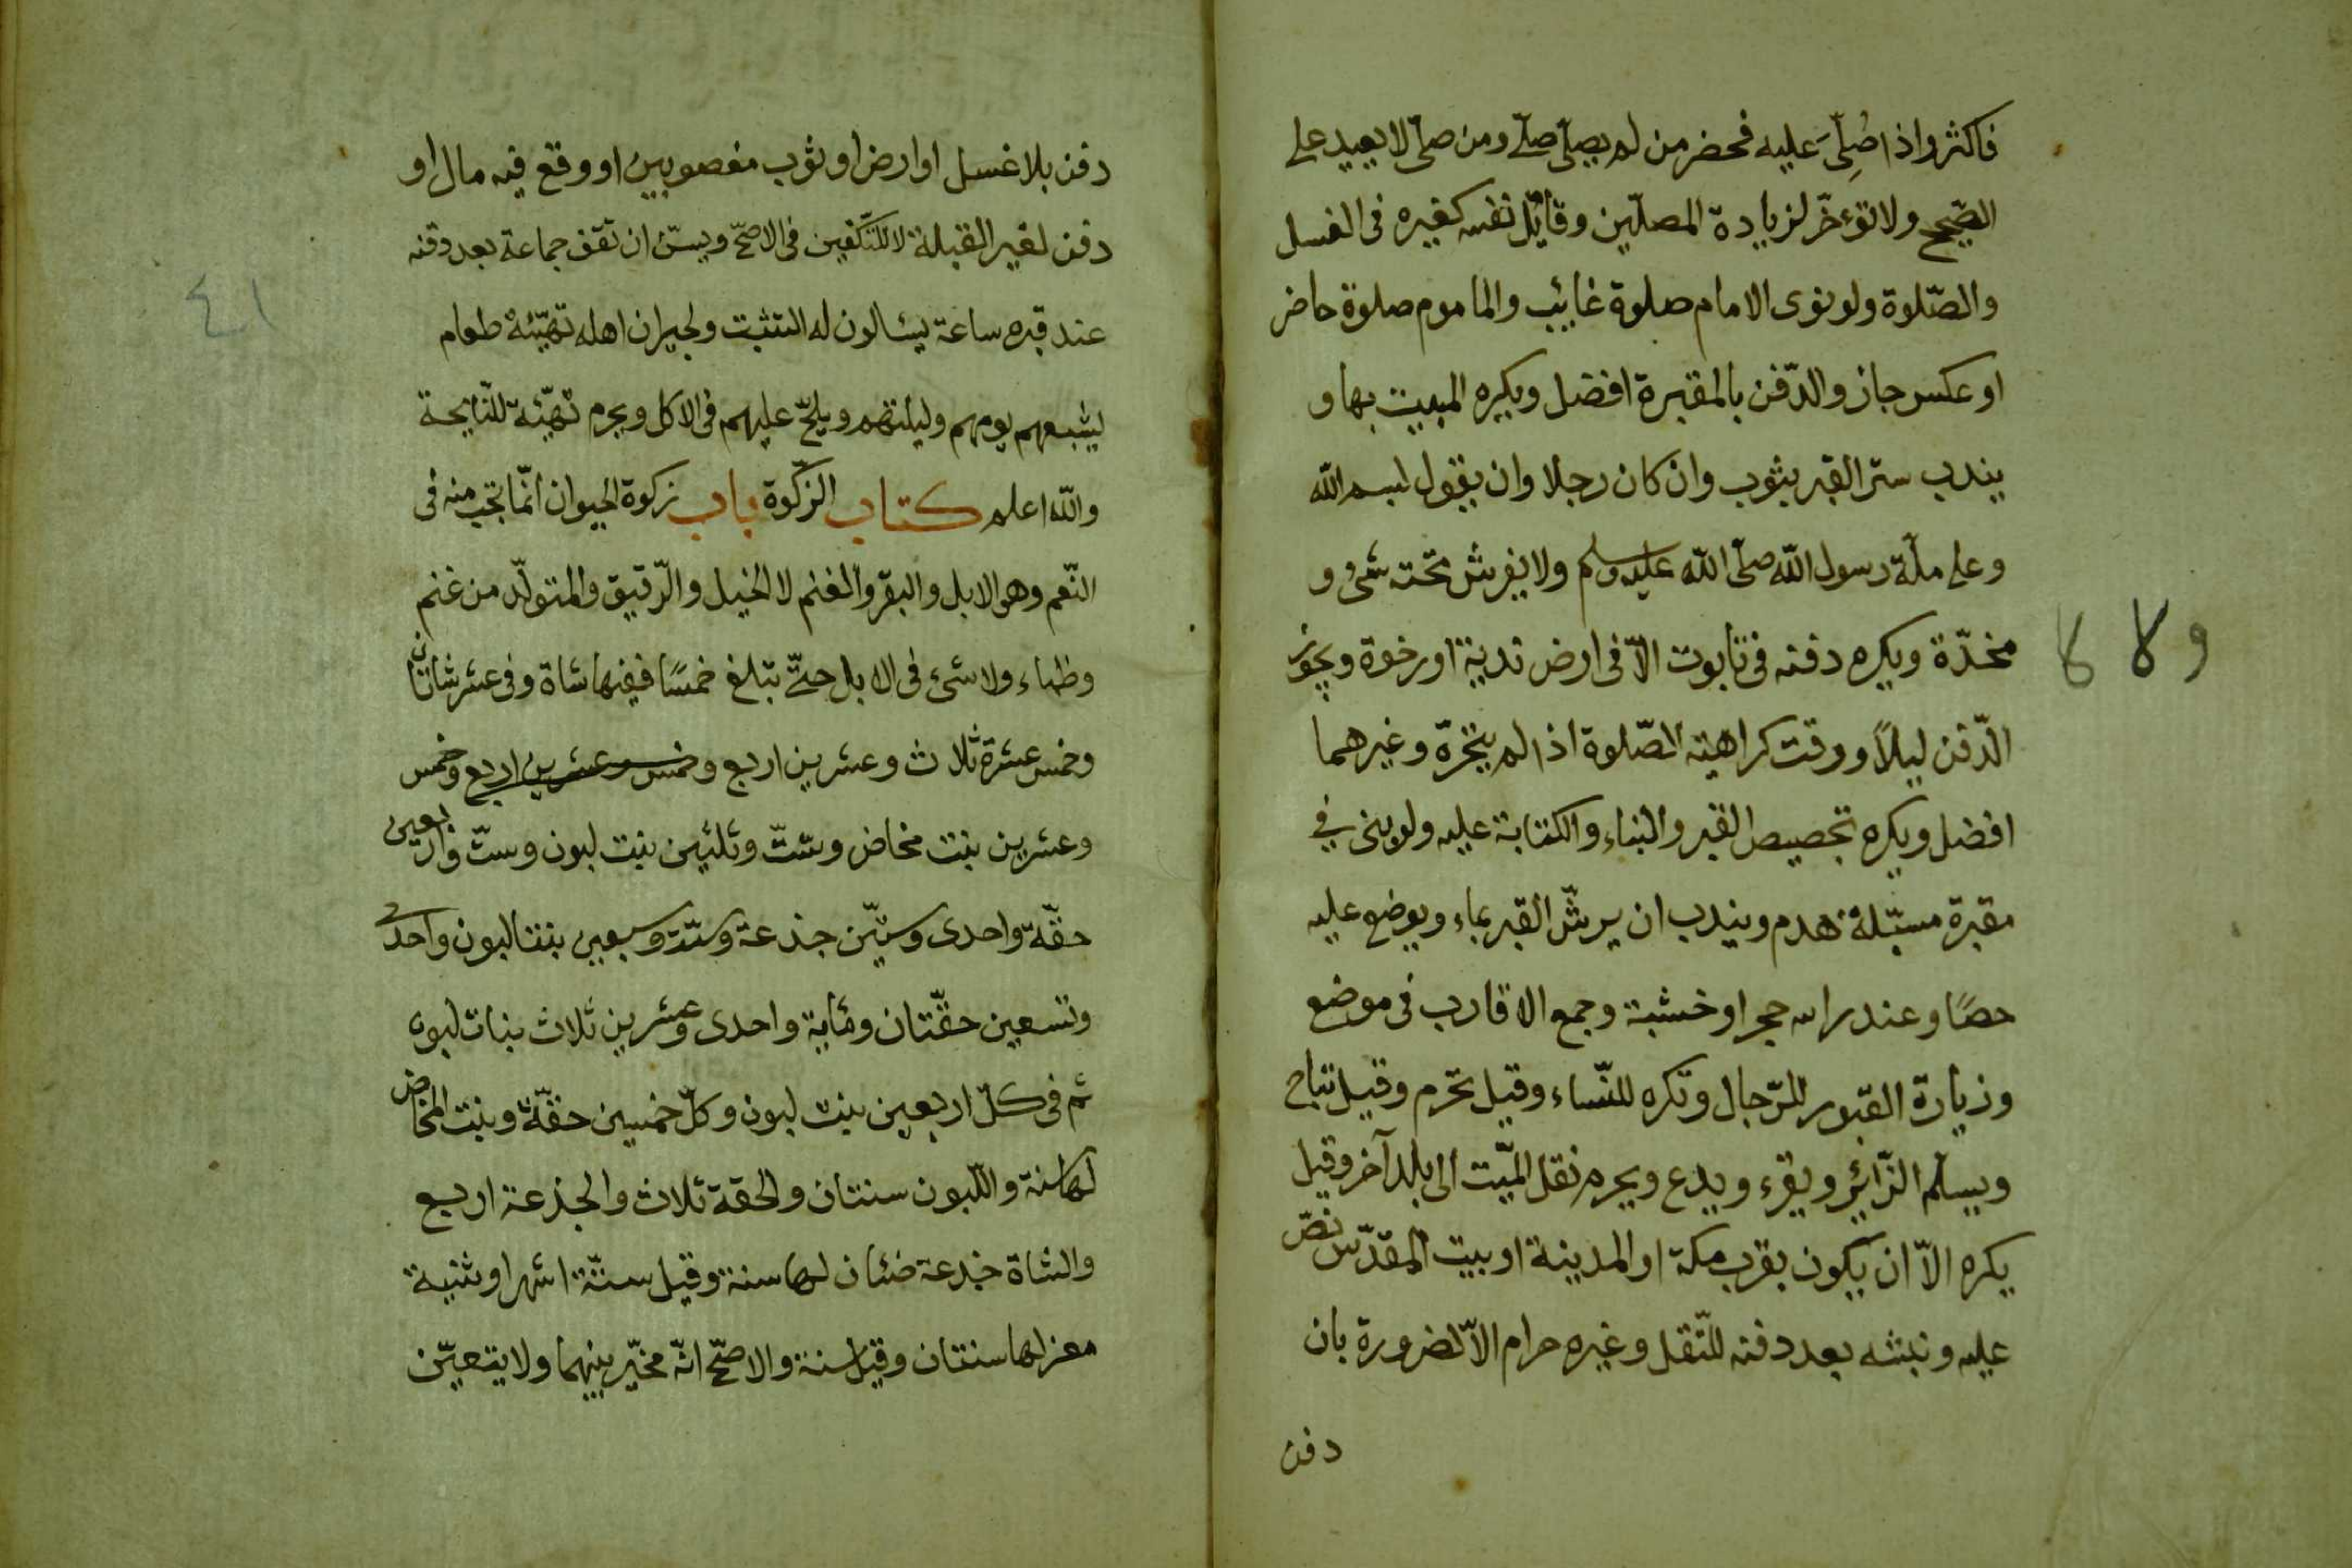 فاكثر واذا صُلِّىَ عليه فحضر من لم يصلّ صلّى ومن صلّى لا يعيد على
الصّحيح ولا تؤخّر لزيادة المصلّين وقاتل نفسه كغيره فى الغسل
والصّلوة ولو نوى الامام صلوة غائب والماموم صلوة حاضر
او عكس جاز والدّفن بالمقبرة افضل ويكره المبيت بها و
يندب ستر القبر بثوب وان كان رجلا وان يقول بسم الله
وعلى ملّة رسول الله صلّى الله عليه وسلم ولا يفرش تحته شئ و
مخدّة ويكره دفنه فى تابوت الاّ فى ارض ندية او رخوة ويجوز
ولا لا
الدّفن ليلاً ووقت كراهية الصّلوة اذا لم يتحرّه وغيرهما
افضل ويكره تجصيص القبر والبناء والكتابة عليه ولو بنى في
مقبرة مسبّلة هدم ويندب ان يرشّ القبر بماء ويوضع عليه
حصًا وعند راسه حجر او خشبة وجمع الاقارب فى موضع
وزيارة القبور للرّجال وتكره للنّساء وقيل تحرم وقيل تباح
ويسلّم الزّائر ويقرء ويدع ويحرم نقل الميّت الى بلد آخر وقيل
يكره الاّ ان يكون بقرب مكة او المدينة او بيت المقدّس نصّ
عليه ونبشه بعد دفنه للنّقل وغيره حرام الاّ لضرورة بان
دفن
دفن بلا غسل او ارض او ثوب مغصوبين او وقع فيه مال او
دفن لغير القبلة لا للتّكفين فى الاصحّ ويسنّ ان تقف جماعة بعد دفنه
٤١
عند قبره ساعة يسئالون له التثبت ولجيران اهله تهيّئة طعام
يشبعهم يومهم وليلتهم ويلحّ عليهم فى الاكل ويحرم تهيّئة للنّايحة
والله اعلم كتاب الزّكوة باب زكوة الحيوان انّما تجب منه فى
النّعم وهى الابل والبقر والغنم لا الخيل والرّقيق والمتولّد من غنم
وظباء ولا شئ فى الابل حتّى تبلغ خمسًا ففيها شاة وفى عشر شاتان
وخمس عشرة ثلاث وعشرين اربع وخمس وعشرين اربع وخمس
وعشرين بنت مخاض وستّ وثلثين بنت لبون وستّ واربعين
حقّة واحدى وستّين جذعة وستّة وسبعين بنتا لبون واحدى
وتسعين حقّتان ومئاية واحدى وعشرين ثلاث بنات لبون
ثم فى كلّ اربعين بنت لبون وكلّ خمسين حقّة وبنت المخاض
لها سنة واللّبون سنتان والحقة ثلاث والجذعة اربع
والشاة جذعة ضئان لها سنة وقيل ستّة اشهر او ثنية
معز لها سنتان وقيل سنة والاصحّ انّه مخيّر بينهما ولا يتعيّن